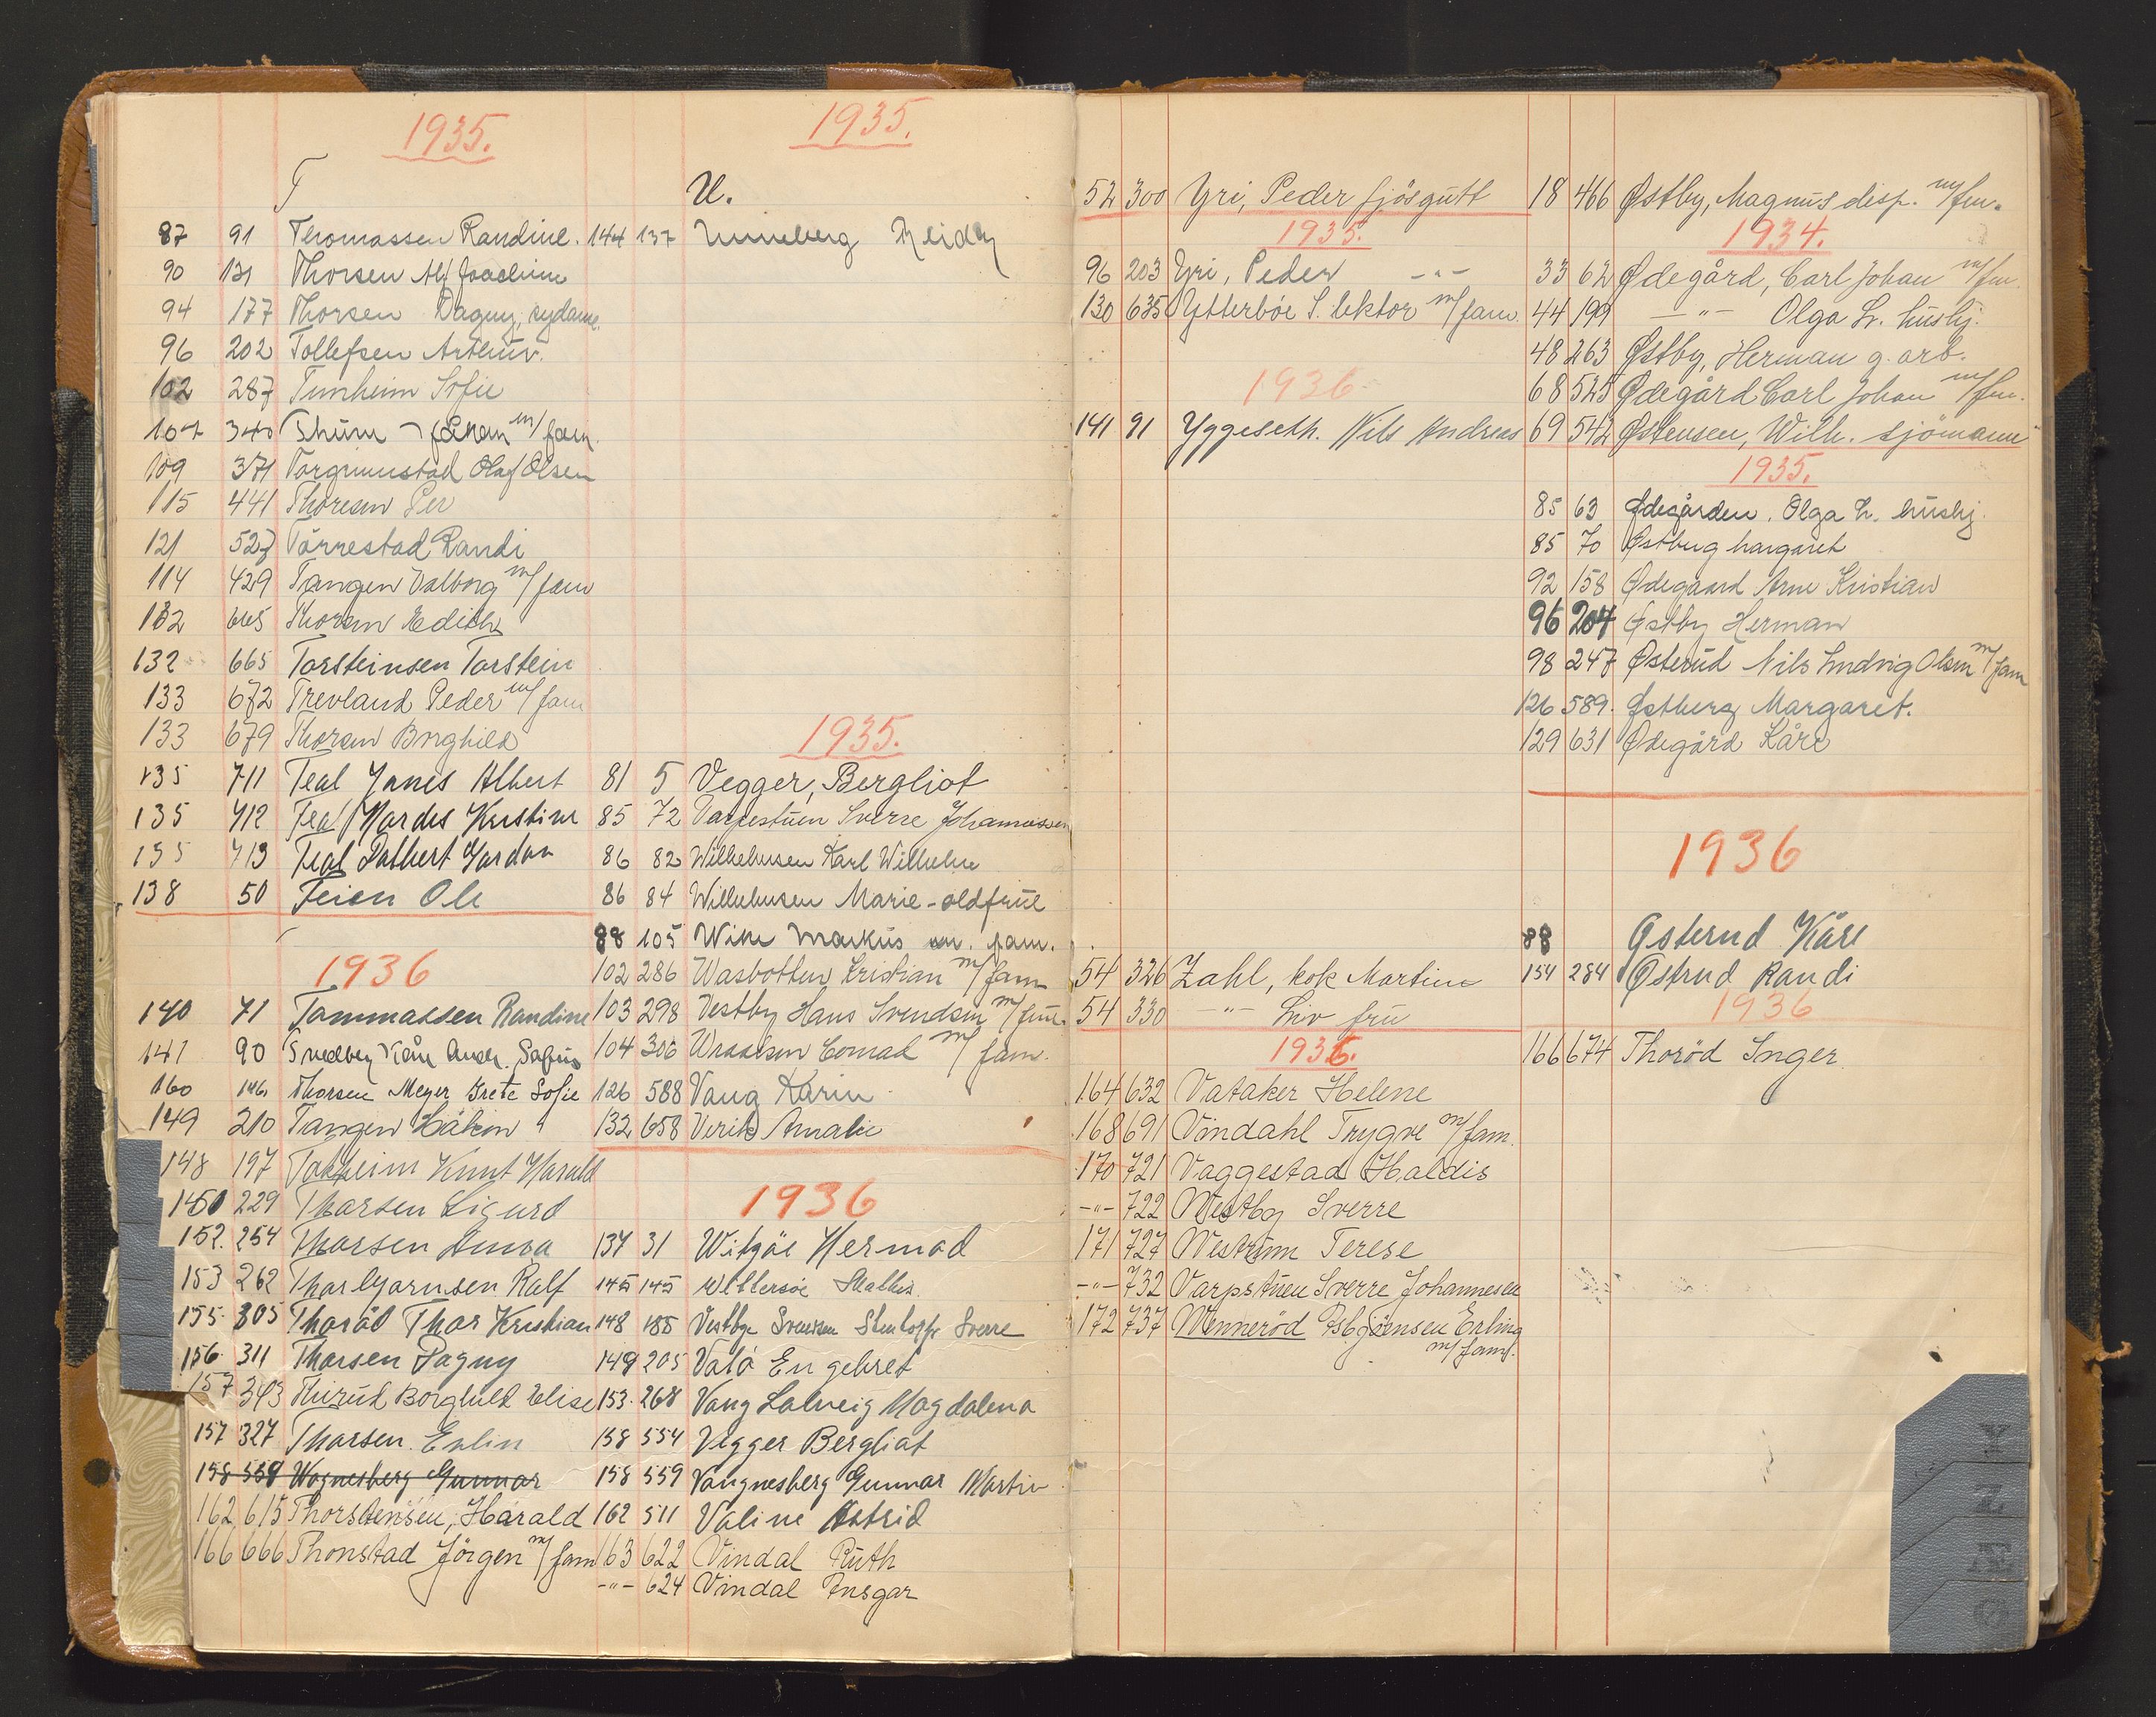 1935.
T
87 91 Thomassen Randine.
90 131 Thorsen Alf Joachim
94 177 Thorsen Dagny, sydame.
96 202 Tollefsen Arthur.
102 287 Tunheim Sofie
107 340 Thune Johan m/ fam.
109 371 Torgrimustad Olaf Olsen
115 441 Thoresen Per
121 527 Törrestad Randi
114 429 Tangen Valborg m/ fam
132 665 Edith
132 665 Torsteinsen Torstein
133 672 Trevland Peder m/ fam
133 679 Borghild
135 711 Teal Janes Albert
135 712 Teal Hardes Kristine
135 713 Teal Dalbert Gordon
138 50 Teien Ole
1936
140 71 Tommassen Randine
141 90 Svedberg Kåre Andr.
160 146 Thorsen Meyer Grete Sofie
149 210 Tangen Håkon
148 197 Knut Harald
150 229 Thorsen Sigurd
152. 254 Thorsen
153 262 Thorbjørnsen Ralf
155 305 Thoröd Thor Kristian
156 311 Thorsen Dagny
157 343 Thirud Borghild Elise
157 327 Thorsen. Erlin
158 559 Wognesberg Gunnar
162 615 Thorstensen, Harald
166 666 Thonstad Jörgen m/ fam
1935.
U.
144 137 Unneberg Reidar
1935.
81 5 Vegger, Bergliot
85 72 Varpestuen Sverre Johannessen
86 82 Wilhelmsen Karl Wilhelm
86 84 Wilhelmsen Marie - oldfrue
88 105 Wike Markus m. fam.
102 286 Wasbotten Kristian m/ fam
103 298 Vestby Hans Svendsen m/ frue.
104 306 Conrad m/ fam.
126 588 Vang Karin
132 658 Verik Amalie
1936
137 31 Witzöe Hermod
145 145
148 185 Vestbye Svensen Sverre
149 205 Valö Engebret
153. 268 Vang Solveig Magdalena
158 554 Vegger Bergliot
158 559 Vangnesberg Gunnar Martin
162 511 Valine Astrid
163 622 Vindal Ruth
-"- 624 Vindal Ansgar
52 300 Yri, Peder fjösgutt
1935.
96 203 Yri, Peder -"-
130 635 Ytterböe S. lektor m/ fam.
1936
141 91 Yggeseth. Nils Andreas
54 326 Zahl, kok Martin
54 330 -"- Liv fru
1936.
164 632 Vataker Helene
168 691 Vindahl Trygve m/ fam.
170 721 Vaggestad Haldis
-"- 722 Westby Sverre
171 727 Westrum Terese
-"- 732 Varpstuen Sverre Johannesen
172 737 Wenneröd Asbjörnsen Erling
m/ fam.
18 466 Østby, Magnus disp. m/ fm.
1934.
33 62 Ødegård, Carl Johan m/ fm.
44 199 -"- Olga L. hushj.
48 263 Østby, Herman g. arb.
68 525 Ødegård Carl Johan m/ fm.
69 542 Østensen, Wilh. sjömann
1935.
85 63 Ødegården. Olga L. hushj.
85 70 Østberg Margaret
92 158 Ødegaard Arne Kristian
96 204 Østby Herman
98 247 Østerud Nils Ludvig Olsen m/ fam
126 589. Østberg Margaret.
129 631 Ødegård Kåre
1936
88 Østerud Kåre
154 284 Østrud Randi
1936
166 674 Thoröd Inger.
Y
Z
Æ
Ø